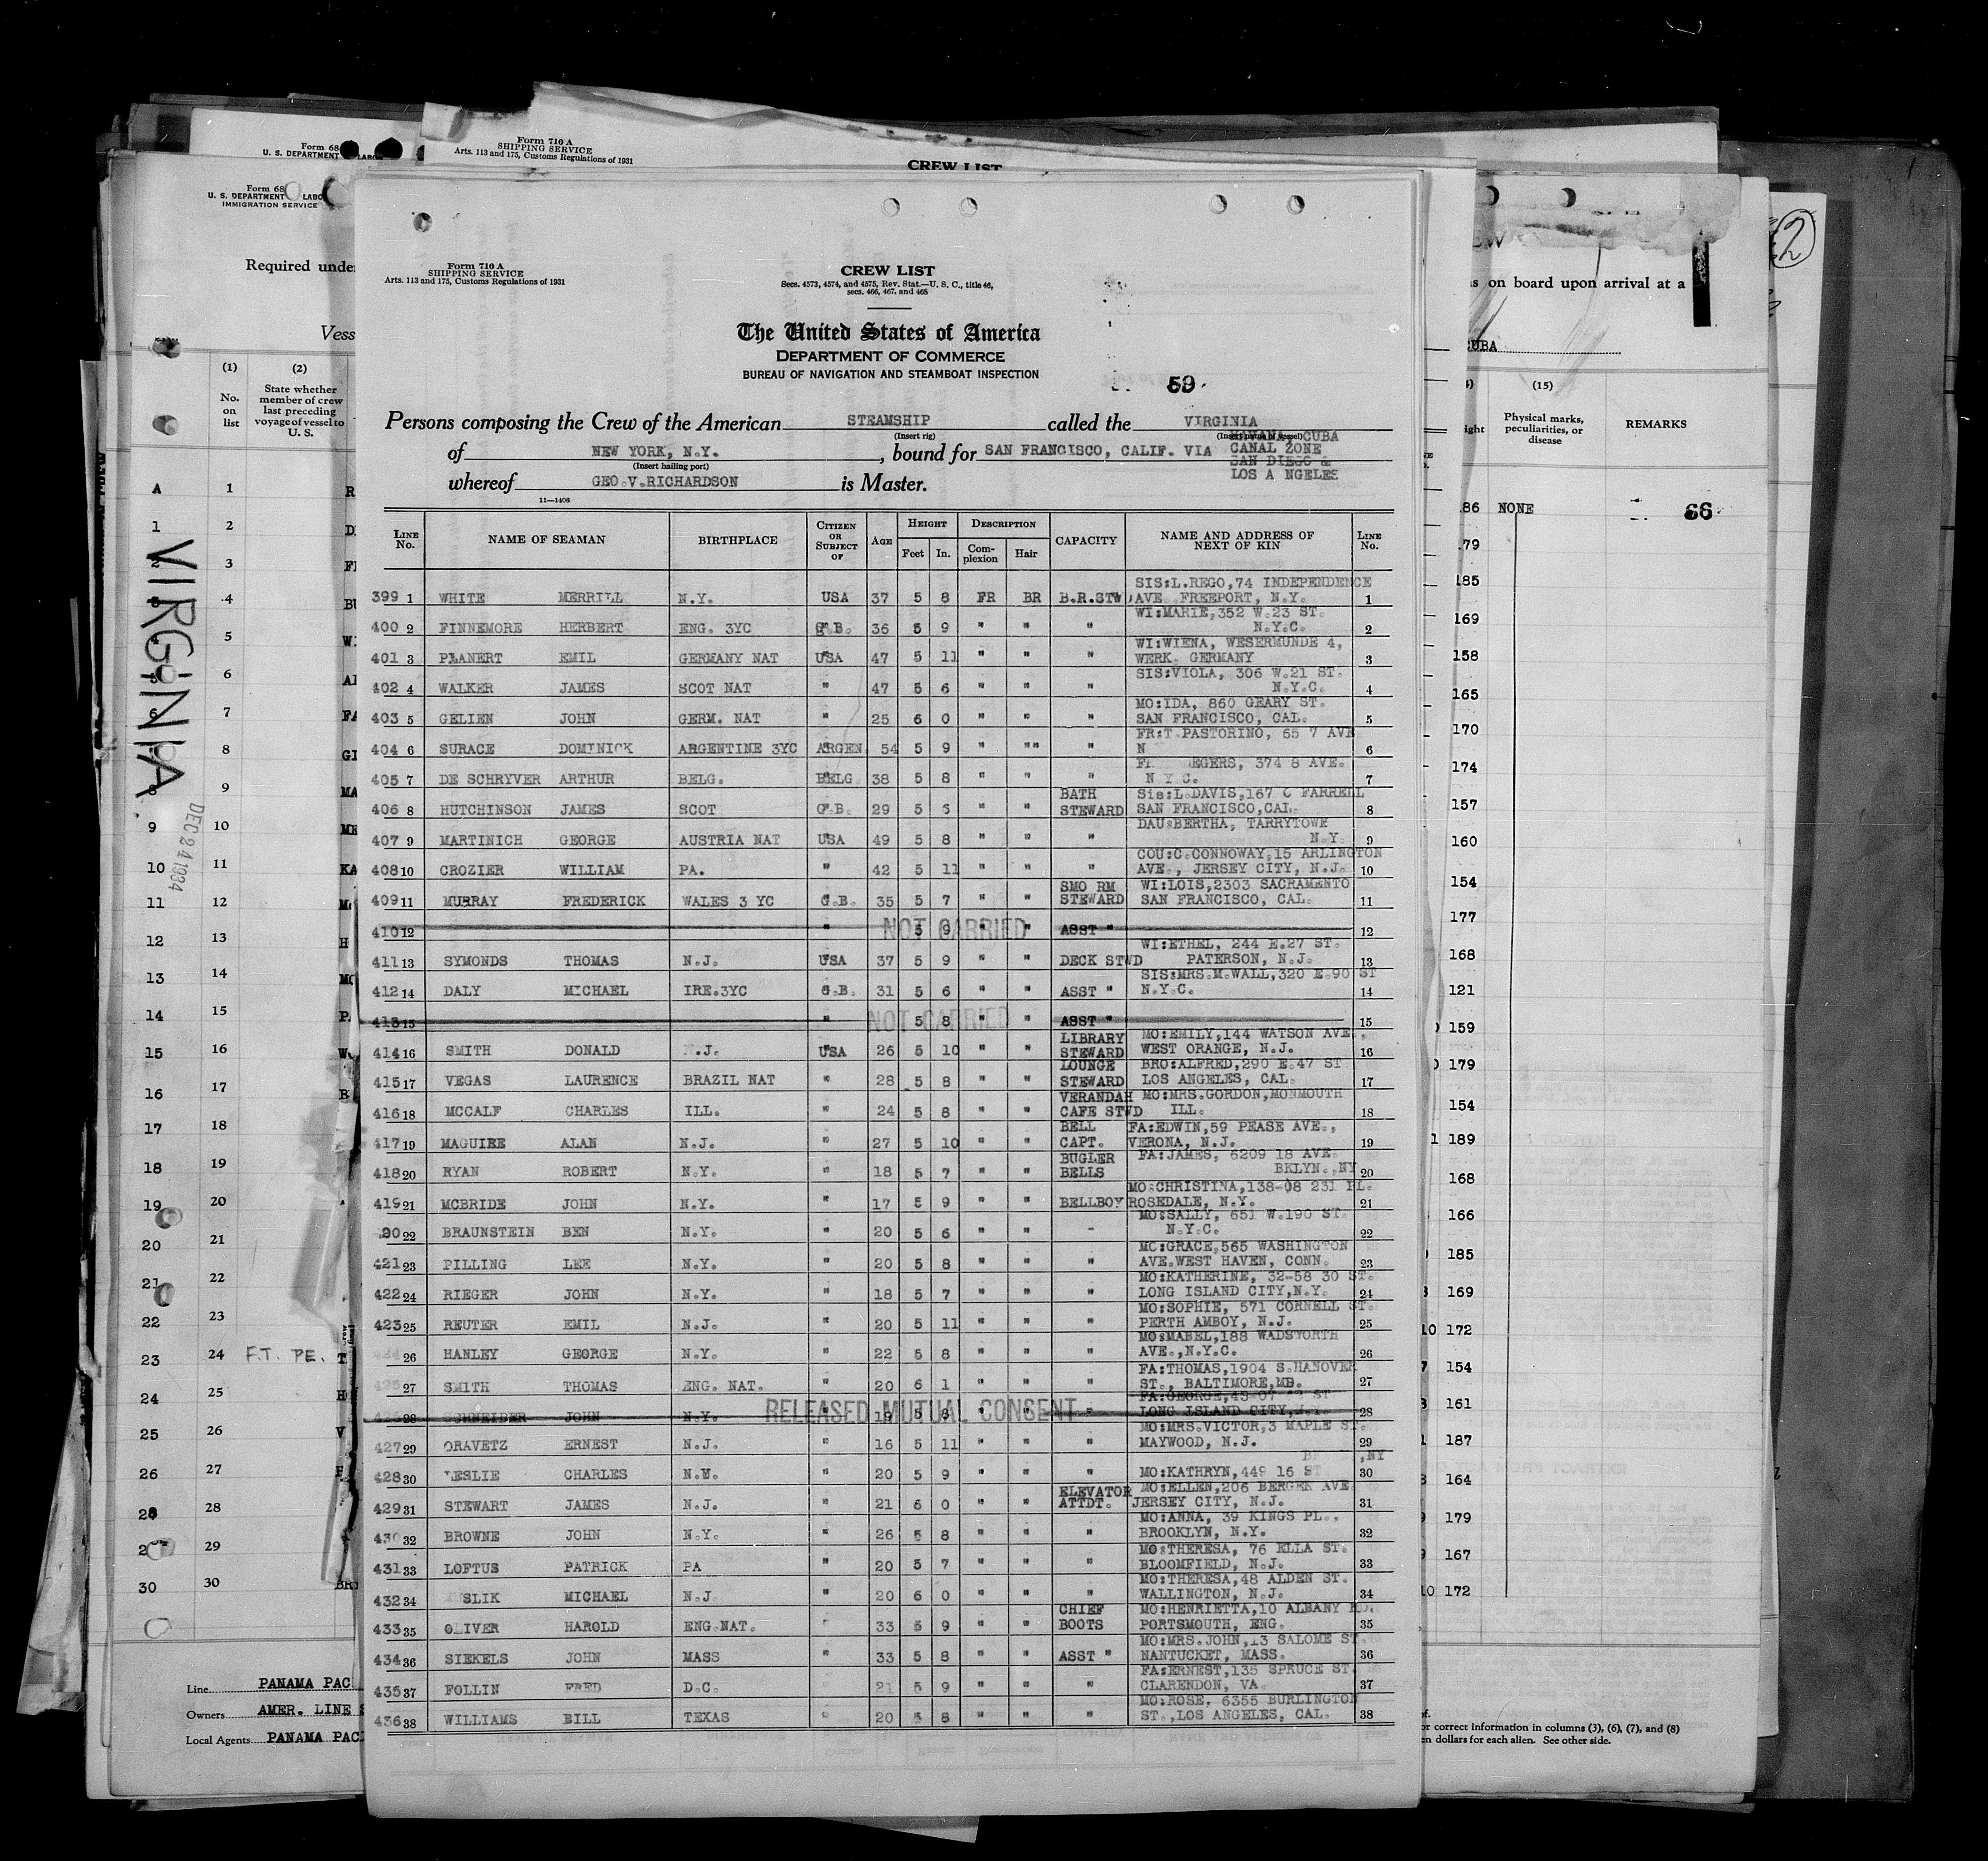 Form 710 A
SHIPPING SERVICE
Arts. 113 and 175, Customs Regulations of 1931
CREW LIST
Form 68
U. S. DEPARTMENT LABO
IMMIGRATION SERVICE
Required unde
Vess
(1) (2)
No. on list
State whether member of crew last preceding voyage of vessel to U. S.
VIRGINIA
DEC 24 1934
F.T. PE.
Line PANAMA PAC
Owners AMER. LINE S
Local Agents PANAMA PAC
Form 710 A
SHIPPING SERVICE
Arts. 113 and 175, Customs Regulations of 1931
CREW LIST
Secs. 4573, 4574, and 4575, Rev. Stat.—U. S. C., title 46,
secs. 466, 467, and 468
The United States of America
DEPARTMENT OF COMMERCE
BUREAU OF NAVIGATION AND STEAMBOAT INSPECTION
59
Persons composing the Crew of the American STEAMSHIP called the VIRGINIA
(Insert rig) (Insert name of vessel)
of NEW YORK, N.Y. , bound for SAN FRANCISCO, CALIF. VIA HAVANA, CUBA
CANAL ZONE
SAN DIEGO &
LOS A NGELES
(Insert hailing port)
whereof GEO.V.RICHARDSON is Master.
11—1406
LINE No. NAME OF SEAMAN BIRTHPLACE CITIZEN OR SUBJECT OF AGE HEIGHT Feet In. DESCRIPTION Complexion Hair CAPACITY NAME AND ADDRESS OF NEXT OF KIN LINE No.
399 1 WHITE MERRILL N.Y. USA 37 5 8 FR BR B.R.STW SIS:L.REGO,74 INDEPENDENCE AVE FREEPORT, N.Y. 1
400 2 FINNEMORE HERBERT ENG. 3YC G.B. 36 5 9 " " " WI:MARIE,352 W.23 ST. N.Y.C. 2
401 3 PLANERT EMIL GERMANY NAT USA 47 5 11 " " " WI:WIENA, WESERMUNDE 4, WERK. GERMANY 3
402 4 WALKER JAMES SCOT NAT " 47 5 6 " " " SIS:VIOLA, 306 W.21 ST. N.Y.C. 4
403 5 GELIEN JOHN GERM. NAT " 25 6 0 " " " MO:IDA, 860 GEARY ST. SAN FRANCISCO, CAL. 5
404 6 SURACE DOMINICK ARGENTINE 3YC ARGEN 54 5 9 " "" " FR:T.PASTORINO, 65 7 AVE N 6
405 7 DE SCHRYVER ARTHUR BELG. BELG 38 5 8 " " " EGERS, 374 8 AVE. N Y C. 7
406 8 HUTCHINSON JAMES SCOT G.B. 29 5 6 " " BATH STEWARD Sis:L.DAVIS,167 O FARRELL SAN FRANCISCO,CAL. 8
407 9 MARTINICH GEORGE AUSTRIA NAT USA 49 5 8 " " " DAU:BERTHA, TARRYTOWN N.Y. 9
408 10 CROZIER WILLIAM PA. " 42 5 11 " " " COU:C.CONNOWAY,15 ARLINGTON AVE., JERSEY CITY, N.J. 10
409 11 MURRAY FREDERICK WALES 3 YC G.B. 35 5 7 " " SMO RM STEWARD WI:LOIS,2303 SACRAMENTO SAN FRANCISCO, CAL. 11
410 12 " NOT CARRIED 5 9 " " ASST " 12
411 13 SYMONDS THOMAS N.J. USA 37 5 9 " " DECK STWD WI:ETHEL, 244 E.27 ST. PATERSON, N.J. 13
412 14 DALY MICHAEL IRE.3YC G.B. 31 5 6 " " ASST " SIS:MRS.M.WALL,320 E.90 ST N.Y.C. 14
413 15 " NOT CARRIED 5 8 " " ASST " 15
414 16 SMITH DONALD N.J. USA 26 5 10 " " LIBRARY STEWARD MO:EMILY,144 WATSON AVE. WEST ORANGE, N.J. 16
415 17 VEGAS LAURENCE BRAZIL NAT " 28 5 8 " " LOUNGE STEWARD BRO:ALFRED,290 E.47 ST LOS ANGELES, CAL. 17
416 18 MCCALF CHARLES ILL. " 24 5 8 " " VERANDAH CAFE STWD MO:MRS.GORDON,MONMOUTH ILL. 18
417 19 MAGUIRE ALAN N.J. " 27 5 10 " " BELL CAPT. FA:EDWIN,59 PEASE AVE., VERONA, N.J. 19
418 20 RYAN ROBERT N.Y. " 18 5 7 " " BUGLER BELLS FA:JAMES, 6209 18 AVE. BKLYN.,NY 20
419 21 MCBRIDE JOHN N.Y. " 17 5 9 " " BELLBOY MO:CHRISTINA,138-08 231 PL. ROSEDALE, N.Y. 21
20 22 BRAUNSTEIN BEN N.Y. " 20 5 6 " " " MO:SALLY, 651 W.190 ST. N.Y.C. 22
421 23 PILLING LEE N.Y. " 20 5 8 " " " MO:GRACE,565 WASHINGTON AVE.WEST HAVEN, CONN. 23
422 24 RIEGER JOHN N.Y. " 18 5 7 " " " MO:KATHERINE, 32-58 30 ST. LONG ISLAND CITY,N.Y. 24
423 25 REUTER EMIL N.J. " 20 5 11 " " " MO:SOPHIE, 571 CORNELL ST. PERTH AMBOY, N.J. 25
26 HANLEY GEORGE N.Y. " 22 5 8 " " " MO:MABEL,188 WADSWORTH AVE.,N.Y.C. 26
425 27 SMITH THOMAS ENG. NAT. " 20 6 1 " " " FA:THOMAS,1904 S.HANOVER ST., BALTIMORE,MD. 27
28 SCHNEIDER JOHN N.Y. RELEASED MUTUAL CONSENT 19 5 8 " FA:GEORGE,43-07 42 ST LONG ISLAND CITY,N.Y. 28
427 29 ORAVETZ ERNEST N.J. " 16 5 11 " " " MO:MRS.VICTOR,3 MAPLE ST. MAYWOOD, N.J. 29
428 30 LESLIE CHARLES N.Y. " 20 5 9 " " " MO:KATHRYN,449 16 ST ,NY 30
429 31 STEWART JAMES N.J. " 21 6 0 " " ELEVATOR ATTDT. MO:ELLEN,206 BERGEN AVE JERSEY CITY, N.J. 31
430 32 BROWNE JOHN N.Y. " 26 5 8 " " " MO:ANNA, 39 KINGS PL., BROOKLYN, N.Y. 32
431 33 LOFTUS PATRICK PA " 20 5 7 " " " MO:THERESA, 76 ELLA ST. BLOOMFIELD, N.J. 33
432 34 SLIK MICHAEL N.J. " 20 6 0 " " " MO:THERESA,48 ALDEN ST. WALLINGTON, N.J. 34
433 35 OLIVER HAROLD ENG.NAT. " 33 5 9 " " CHIEF BOOTS MO:HENRIETTA,10 ALBANY RD. PORTSMOUTH, ENG. 35
434 36 SIEKELS JOHN MASS " 33 5 8 " " ASST " MO:MRS.JOHN,13 SALOME ST. NANTUCKET, MASS. 36
435 37 FOLLIN FRED D.C. " 21 5 9 " " " FA:ERNEST,135 SPRUCE ST. CLARENDON, VA. 37
436 38 WILLIAMS BILL TEXAS " 20 5 8 " " " MO:ROSE, 6355 BURLINGTON ST.,LOS ANGELES, CAL. 38
2
s on board upon arrival at a
CUBA
(15)
Physical marks, peculiarities, or disease
REMARKS
186 NONE 66
179
185
169
158
165
170
174
157
160
154
177
168
121
159
179
154
189
168
166
185
169
10 172
154
161
187
164
179
167
10 172
or correct information in columns (3), (6), (7), and (8)
en dollars for each alien. See other side.